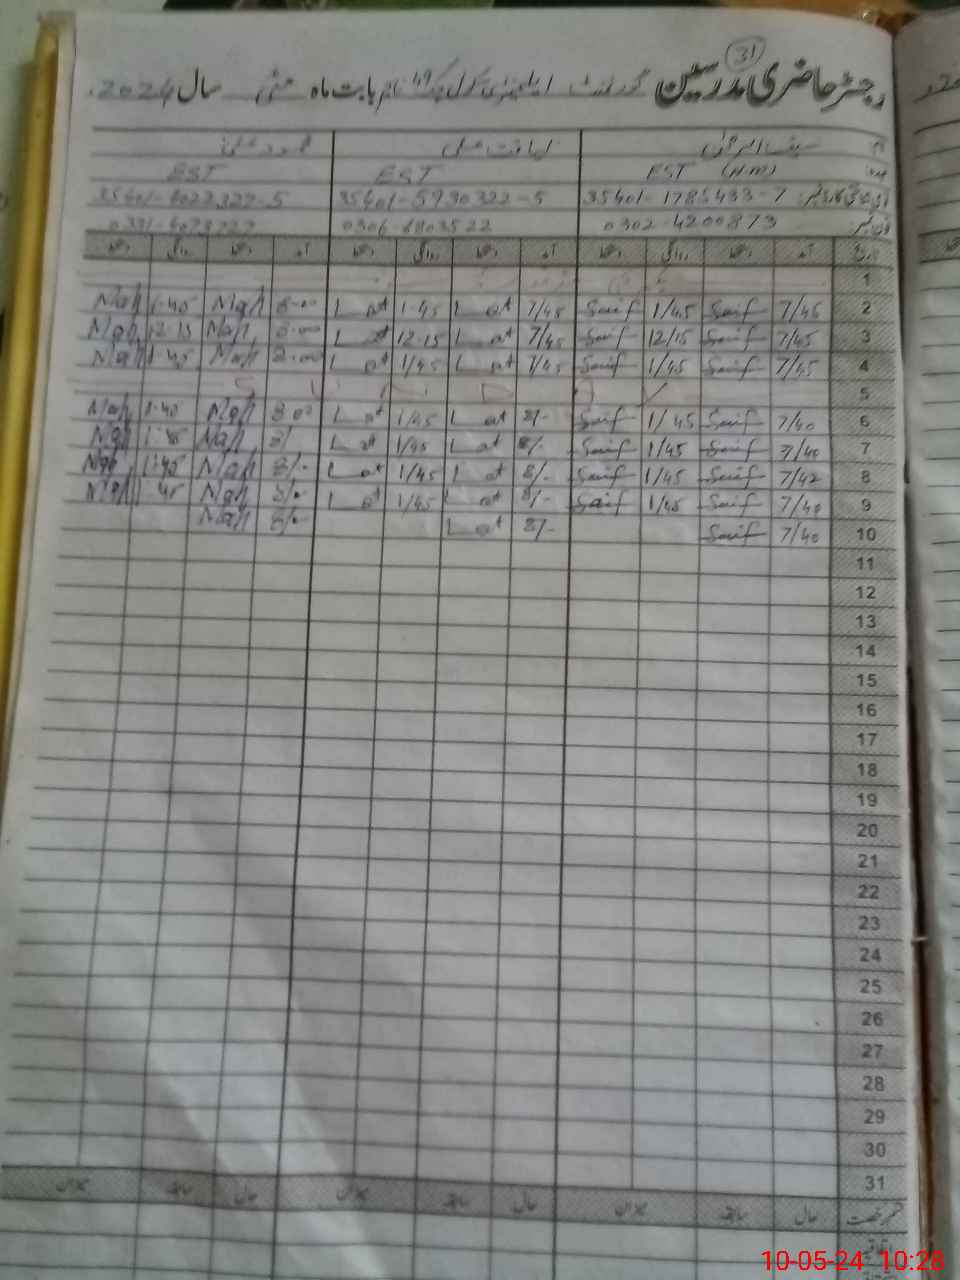 31
رجسٹر حاضری مدرسین گورنمنٹ ایلیمنٹری سکول چک 49 بابت ماہ مئی سال 2024ء
نام سیف الرحمٰن لیاقت علی محمود علی
عہدہ EST (H.M) EST EST
شناختی کارڈ نمبر: 35401-1785433-7 35401-5930322-5 35401-4022327-5
فون نمبر 0302-4200873 0306-6803522
تاریخ آمد دستخط روانگی دستخط آمد دستخط روانگی دستخط آمد دستخط روانگی دستخط
1
2 7/45 Saif 1/45 Saif 7/45 L at 1-45 L at 8-00 Mah 1-45 Mah
3 7/45 Saif 12/15 Saif 7/45 L at 12-15 L at 8-00 Mah 12-15 Mah
4 7/45 Saif 1/45 Saif 7/45 L at 1/45 L at 8-00 Mah 1-45 Mah
5
6 7/40 Saif 1/45 Saif 8/- L at 1/45 L at 8-00 Mah 1-45 Mah
7 7/40 Saif 1/45 Saif 8/- L at 1/45 L at 8/- Mah 1-45 Mah
8 7/42 Saif 1/45 Saif 8/- L at 1/45 L at 8/- Mah 1-45 Mah
9 7/40 Saif 1/45 Saif 8/- L at 1/45 L at 8/- Mah 1-45 Mah
10 7/40 Saif 8/- L at 8/- Mah
11
12
13
14
15
16
17
18
19
20
21
22
23
24
25
26
27
28
29
30
31
قسم رخصت حال سابقہ میزان حال سابقہ میزان حال سابقہ میزان
اتفاقیہ
10-05-24 10:28